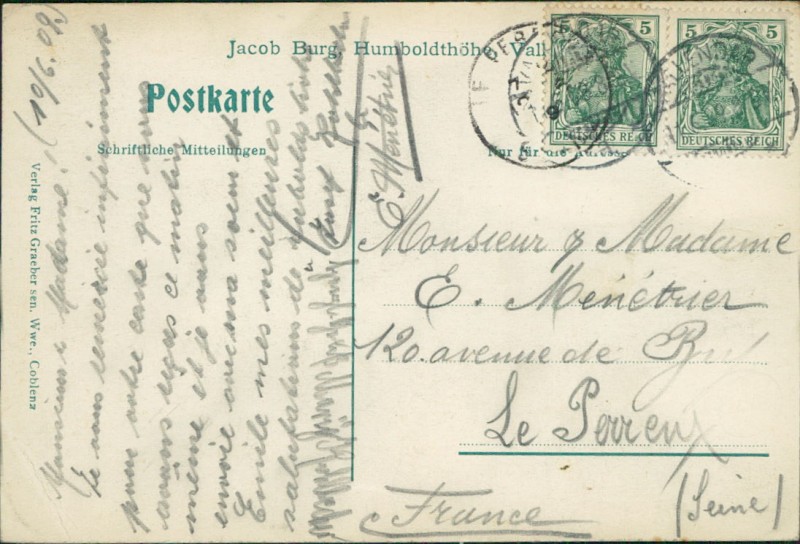 Jacob Burg, Humboldthöhe, Vall
Postkarte
Schriftliche Mitteilungen
Nur für die Adresse
Verlag Fritz Graeber sen. Wwe., Coblenz
5 5
DEUTSCHES REICH
5 5
DEUTSCHES REICH
LE PERREUX
Monsieur & Madame
E. Ménétrier
120 avenue de
Le Perreux
(Seine)
France
Monsieur, Madame,
Je vous remercie infiniment
pour votre carte que nous
avons reçus ce matin
meme et je vous
envoie avec ma soeur et
Emile mes meilleures
salutations de
E. Ménétrier